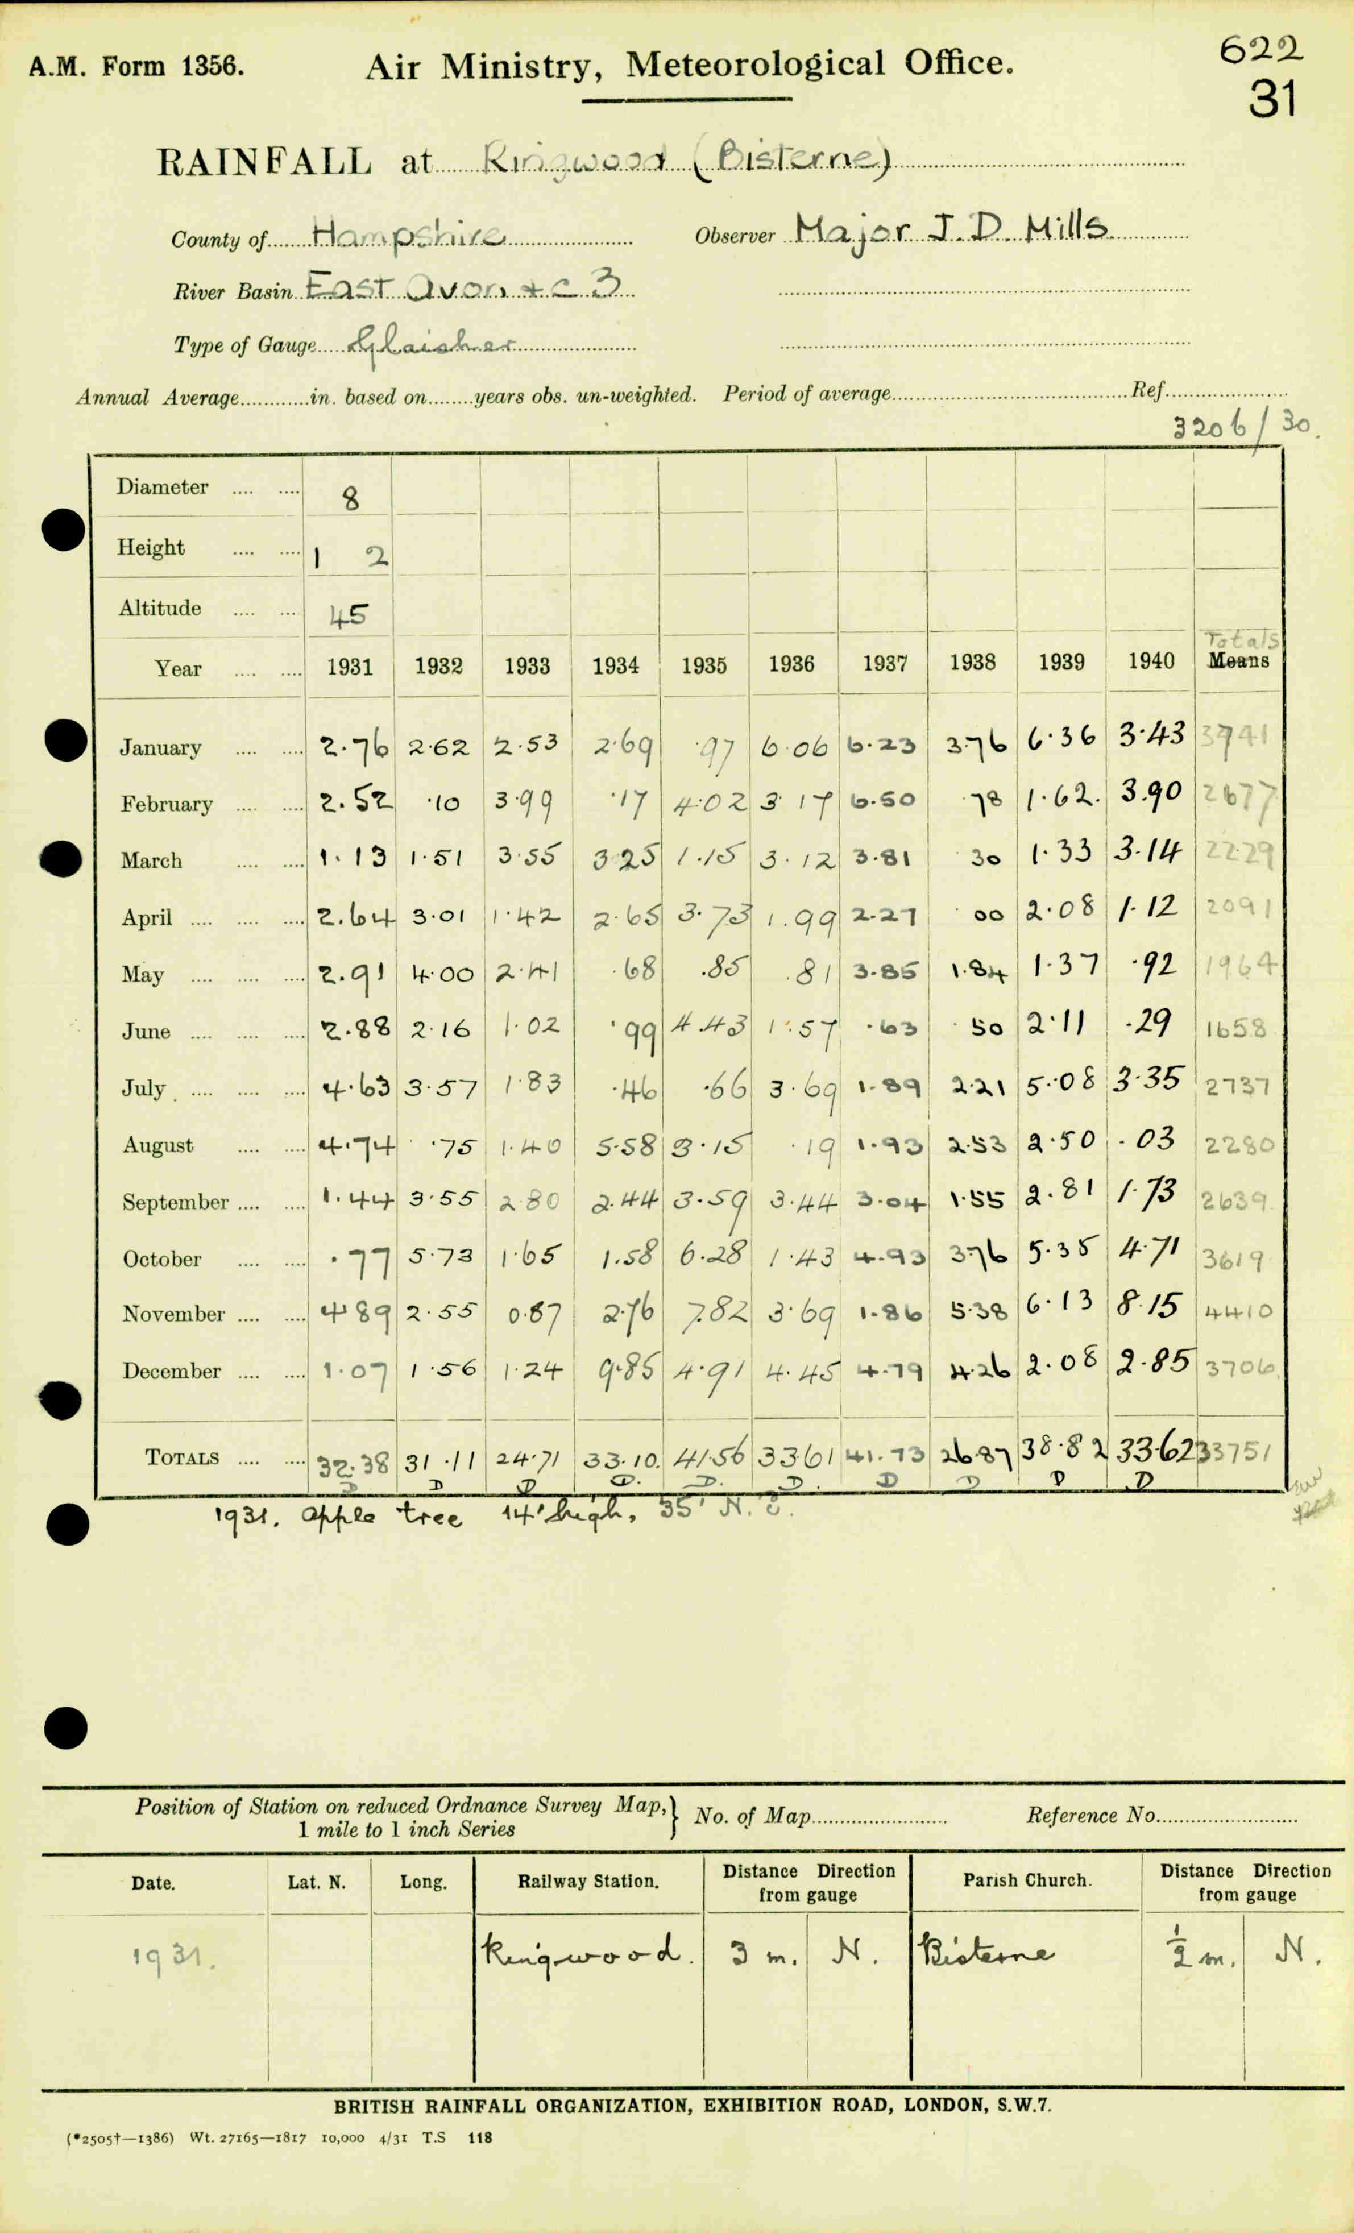 A.M. Form 1356. Air Ministry, Meteorological Office. 622
31
RAINFALL at Ringwood (Bisterne)
County of Hampshire Observer Major J. D. Mills
River Basin East Avon + C 3
Type of Gauge Glaisher
Annual Average in. based on years obs. un-weighted. Period of average Ref.
3206/30.
Diameter 8
Height 1 2
Altitude 45
Totals
Year 1931 1932 1933 1934 1935 1936 1937 1938 1939 1940 Means
January 2.76 2.62 2.53 2.69 .97 6.06 6.23 3.76 6.36 3.43 3741
February 2.52 .10 3.99 .17 4.02 3.17 6.50 .78 1.62. 3.90 2677
March 1.13 1.51 3.55 3.25 1.15 3.12 3.81 30 1.33 3.14 2229
April 2.64 3.01 1.42 2.65 3.73 1.99 2.27 .00 2.08 1.12 2091
May 2.91 4.00 2.41 .68 .85 .81 3.85 1.84 1.37 .92 1964
June 2.88 2.16 1.02 .99 4.43 1.57 .63 .50 2.11 .29 1658
July 4.63 3.57 1.83 .46 .66 3.69 1.89 2.21 5.08 3.35 2737
August 4.74 .75 1.40 5.58 3.15 .19 1.93 2.53 2.50 .03 2280
September 1.44 3.55 2.80 2.44 3.59 3.44 3.04 1.55 2.81 1.73 2639
October .77 5.73 1.65 1.58 6.28 1.43 4.93 3.76 5.35 4.71 3619
November 4.89 2.55 0.87 2.76 7.82 3.69 1.86 5.38 6.13 8.15 4410
December 1.07 1.56 1.24 9.85 4.91 4.45 4.79 4.26 2.08 2.85 3706
TOTALS 32.38 31.11 24.71 33.10. 41.56 33.61 41.73 26.87 38.82 33.62 33751
D D D D. D. D. D D D D
1931. apple tree 14' high, 35' N. E.
Position of Station on reduced Ordnance Survey Map, } No. of Map Reference No.
1 mile to 1 inch Series
Date. Lat. N. Long. Railway Station. Distance Direction from gauge Parish Church. Distance Direction from gauge
1931. Ringwood. 3 m. N. Bisterne ½ m. N.
BRITISH RAINFALL ORGANIZATION, EXHIBITION ROAD, LONDON, S.W.7.
(*2505†—1386) Wt. 27165—1817 10,000 4/31 T.S 118